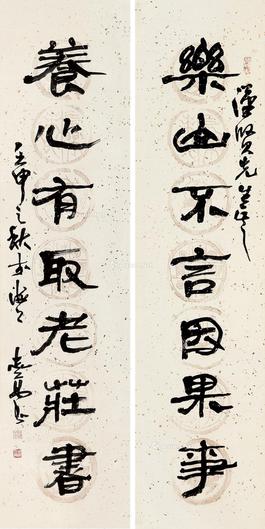 樂山不言因果事
先生
養心有取老莊書
壬申之秋